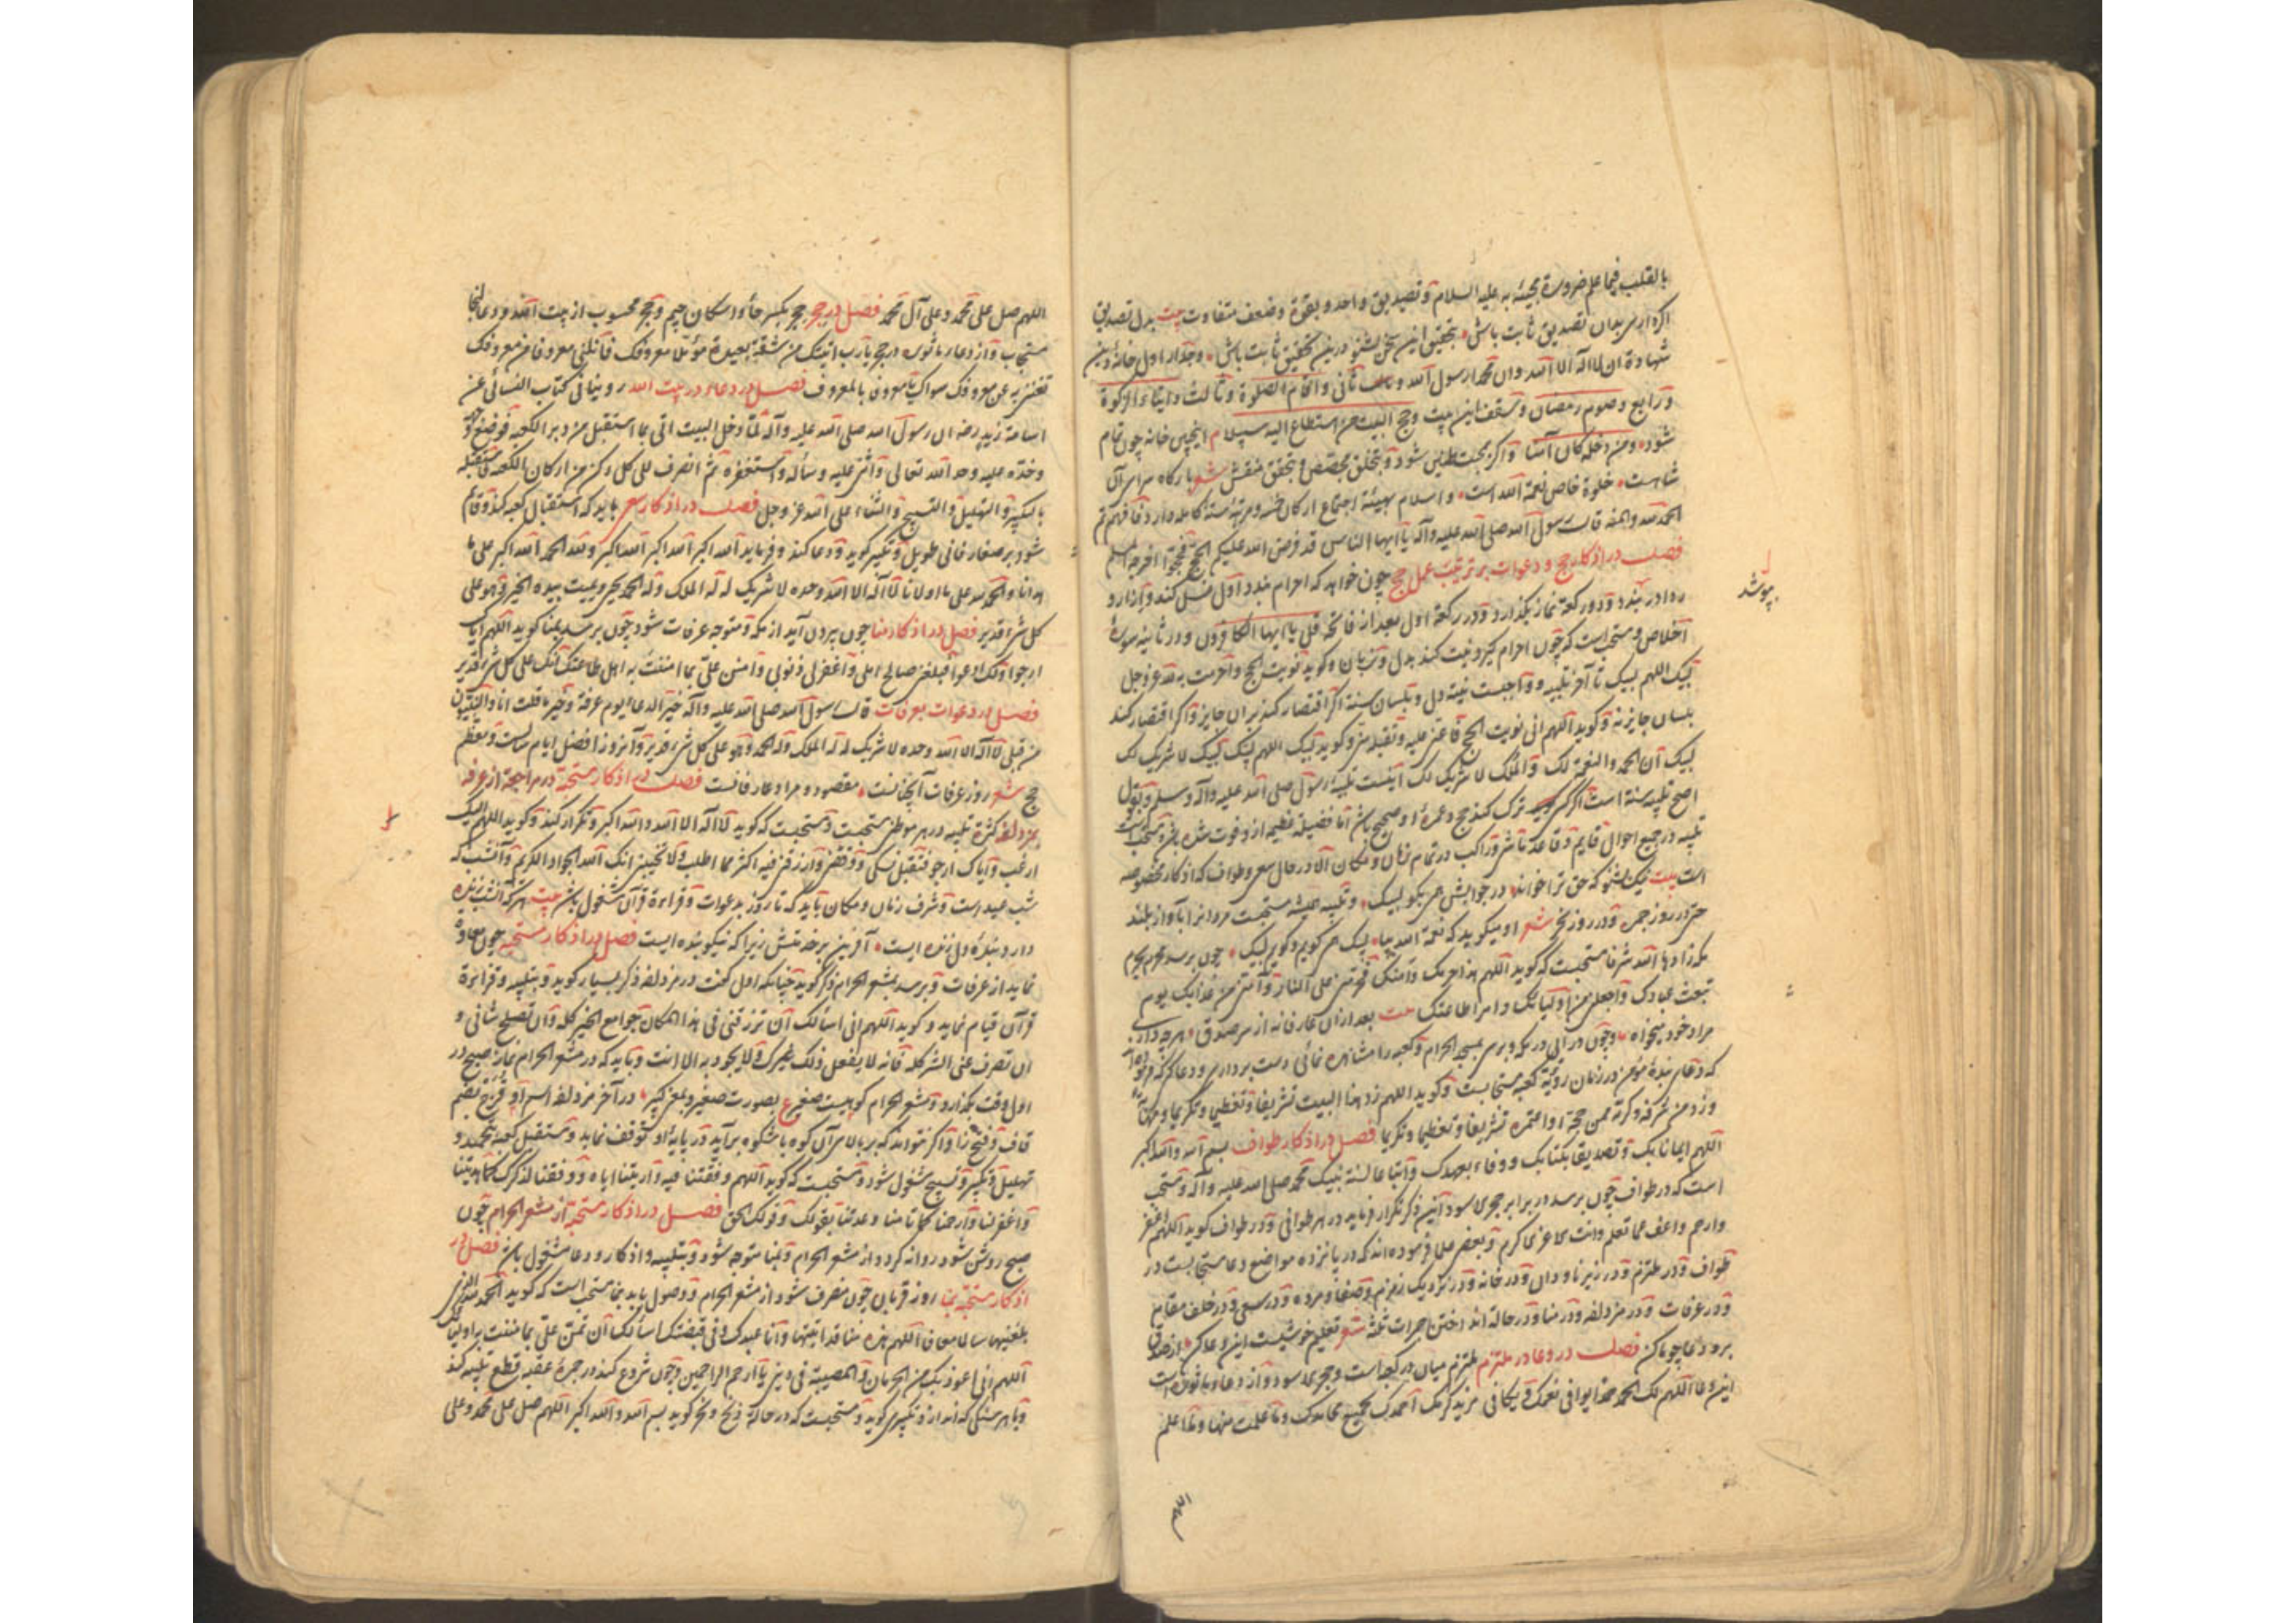 بالقلب فیما علم ضرورة مجیئه به علیه السلام و تصدیق واحد و بقوة و ضعف متفاوت بیت بدل تصدیق
اکر داری بدان تصدیق ثابت باشی بتحقیق این سخن بشنو درین تحقیق ثابت باش وجدار اول خانه دین
شهادة ان لا اله الا الله وان محمدا رسول الله و ثانی واقام الصلوة و ثالث وایتاء الزکوة
و رابع وصوم رمضان و سقف این بیت وحج البیت من استطاع الیه سبیلا م اینچنین خانه چون تمام
شود ومن دخله کان آمنا
شاست خلوة خاص نعمة الله است و اسلام بهیئة اجتماع ارکان خمسه
الحمد لله والمنه قال رسول الله صلی الله علیه وآله یا ایها الناس قد فرض الله علیکم الحج فحجوا اخرجه مسلم
فصل در اذکار حج و دعوات بر ترتیب عمل حج چون خواهد که احرام بندد اول غسل کند و ازار و
ردا در بندد و دو رکعة نماز بکذارد و در رکعة اول بعد از فاتحه قل یا ایها الکافرون و در ثانیه سورة
اخلاص و مستحب است که چون احرام کیرد نیت کند بدل و بزبان و کوید نویت الحج واحرمت به لله عز و جل
لبیک اللهم لبیک تا آخر تلبیه و واجبست نیة دل و بلسان سنة اکر اقتصار کند بران جایز و اکر اقتصار کند
بلسان جایز نه و کوید اللهم انی نویت الحج فاعنی علیه وتقبله منی و کوید لبیک اللهم لبیک لبیک لا شریک لک
لبیک ان الحمد والنعمة لک والملک لا شریک لک اینست تلبیة رسول صلی الله علیه وآله وسلم وبقول
اصح تلبیه سنة است اکر کسی ترک کند حج و عمرة او صحیح باشد اما فضیلة عظیم ازو فوت شده باشد و مستحب است
تلبیه در جمیع احوال قایم و قاعد ماش و راکب در تمام زمان و مکان الا در حال سعی و طواف که اذکار مخصوصه
است بیت نیک بشنو که حق ترا خواند در جوابش همی بکو لبیک و تلبیه همیشه مستحبست مردانرا بآواز بلند
حتی در روز جمره و در روز نحر شعر او میکوید که نعمة الله بیا لبیک می کویم و کویم لبیک چون برسد بحرم
مکه زادها الله شرفا مستحبست که کوید اللهم هذا حرمک وامنک فحرمنی علی النار وآمنی من عذابک یوم
تبعث عبادک واجعلنی من اولیائک واهل طاعتک بیت بعد ازان عارفانه از سر صدق هرچه داری
مراد خود میخواه و چون درآیی در مکه و برسی بمسجد الحرام و کعبه را مشاهده نمائی دست برداری و دعا کن که فرمودند
که دعای بندة مؤمن در زمان رؤیة کعبه مستجابست و کوید اللهم زد هذا البیت تشریفا وتعظیما وتکریما ومهابة
وزد من شرفه وکرمه ممن حجه او اعتمره تشریفا وتعظیما وتکریما فصل در اذکار طواف بسم الله والله اکبر
اللهم ایمانا بک وتصدیقا بکتابک ووفاء بعهدک واتباعا لسنة نبیک محمد صلی الله علیه وآله و مستحب
است که در طواف چون برسد در برابر حجر اسود این ذکر تکرار فرماید در هر طوافی و در طواف کوید اللهم اغفر
وارحم واعف عما تعلم وانت الاعز الاکرم و بعضی علما فرموده اند که در پانزده مواضع دعا مستجابست در
طواف و در ملتزم و در زیر ناودان و در خانه و در نزدیک زمزم و صفا و مروه و در سعی و در خلف مقام
و در عرفات و در مزدلفه و در منا و در حالة انداختن جمرات ثلثة شعر تعلیم خوشیست این دعا کن از صدق
برو دعا چو ما کن فصل در دعا در ملتزم ملتزم میان در کعبه است و حجر الاسود و از دعاء ماثوره است
این دعا اللهم لک الحمد حمدا یوافی نعمک ویکافی مزید کرمک احمدک بجمیع محامدک وما علمت منها وما اعلم
بپوشد
اللهم
اللهم صل علی محمد وعلی آل محمد فصل در حجر حجر بکسر حاء و اسکان جیم و حجر محسوب از بیت الله و دعا آنجا
مستجاب و از دعاء ماثوره در حجر یا رب اتیتک من شقة بعیدة مؤملا معروفک فانلنی معروفا من معروفک
تغننی به عن معروف من سواک یا معروفا بالمعروف فصل در دعاء در بیت الله روینا فی کتاب النسائی عن
اسامة بن زید رضه ان رسول الله صلی الله علیه وآله لما دخل البیت اتی ما استقبل من دبر الکعبه فوضع وجهه
وخده علیه وحمد الله تعالی واثنی علیه وسأله واستغفره ثم انصرف الی کل رکن من ارکان الکعبه فاستقبله
بالتکبیر والتهلیل والتسبیح والثناء علی الله عز وجل فصل در اذکار سعی باید که استقبال کعبه کند و قایم
شود بر صفا زمانی طویل و تکبیر کوید و دعا کند و فرماید الله اکبر الله اکبر الله اکبر ولله الحمد الله اکبر علی ما
هدانا والحمد لله علی ما اولانا لا اله الا الله وحده لا شریک له له الملک وله الحمد یحیی ویمیت بیده الخیر وهو علی
کل شیء قدیر فصل در اذکار منا چون بیرون آید از مکه و متوجه عرفات شود چون برسد بمنا کوید اللهم ایاک
ارجوا ولک ادعوا فبلغنی صالح املی واغفرلی ذنوبی وامنن علی بما مننت به اهل طاعتک انک علی کل شیء قدیر
فصل در دعوات بعرفات قال رسول الله صلی الله علیه وآله خیر الدعاء یوم عرفة وخیر ما قلت انا والنبیون
من قبلی لا اله الا الله وحده لا شریک له له الملک وله الحمد وهو علی کل شیء قدیر و آنروز افضل ایام سالست و معظم
حج شعر روز عرفات آنچنانست مقصود و مراد عارفانست فصل در اذکار مستحبة در مراجعة از عرفه
بمزدلفه کثرة تلبیه در هر موطن مستحبست و مستحبست که کوید لا اله الا الله والله اکبر و تکرار کند و کوید اللهم الیک
ارغب وایاک ارجو فتقبل نسکی ووفقنی وارزقنی فیه اکثر مما اطلب ولا تخیبنی انک الله الجواد الکریم و آنشب که
شب عید است و شرف زمان و مکان باید که تا روز بدعوات و قراءة قرآن مشغول باشد بیت هرکه آنشب زنده
دارد بندة دل زنده ایست آفرین بر خدمتش زیرا که نیکو بنده ایست فصل در اذکار مستحبه چون معاودة
نماید از عرفات و برسد بمشعر الحرام ذکر کوید چنانکه اول کفت در مزدلفه ذکر بسیار کوید و بتلبیه و قراءة
قرآن قیام نماید و کوید اللهم انی اسألک ان ترزقنی فی هذا المکان جوامع الخیر کله وان تصلح شانی و
ان تصرف عنی الشر کله فانه لا یفعل ذلک غیرک ولا یجود به الا انت و باید که در مشعر الحرام نماز صبح در
اول وقت بکذارد و مشعر الحرام کوهیست صغیر ع بصورت صغیر و بمعنی کبیر در آخر مزدلفه اسم او قزح بضم
قاف و فتح زا و اکر تواند که بر بالای آن کوه باشکوه برآید و در پایة او توقف نماید و مستقبل کعبه بتحمید و
تهلیل و تکبیر و تسبیح مشغول شود و مستحبست که کوید اللهم وقفتنا فیه واریتنا ایاه ووفقنا لذکرک کما هدیتنا
واغفرلنا وارحمنا کما وعدتنا بقولک وقولک الحق فصل در اذکار مستحبة از مشعر الحرام چون
صبح روشن شود روانه کردد از مشعر الحرام و بمنا متوجه شود و بتلبیه و اذکار و دعا مشغول باشد فصل در
اذکار مستحبة بمنا روز قربان چون منصرف شود از مشعر الحرام و وصول یابد بمنا مستحب است که کوید الحمد لله الذی
بلغنیها سالما معافا اللهم هذه منا قد اتیتها وانا عبدک وفی قبضتک اسألک ان تمن علی بما مننت به اولیائک
اللهم انی اعوذ بک من الحرمان والمصیبة فی دینی یا ارحم الراحمین و چون شروع کند در جمرة عقبه قطع تلبیه کند
و با هر سنکی که اندازد تکبیری کوید و مستحبست که در حالة ذبح و نحر کوید بسم الله والله اکبر اللهم صل علی محمد وعلی